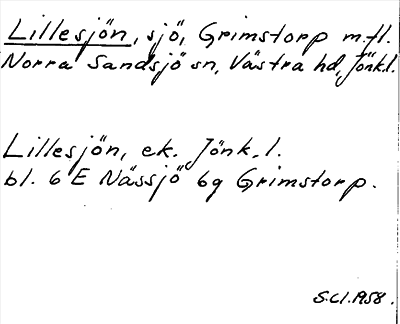 Lillesjön, sjö, Grimstorp m.fl.
Norra Sandsjö sn, Västra hd, Jönk.l.
Lillesjön, ek. Jönk. l.
bl. 6 E Nässjö 6g Grimstorp.
S.Cl. 1958.